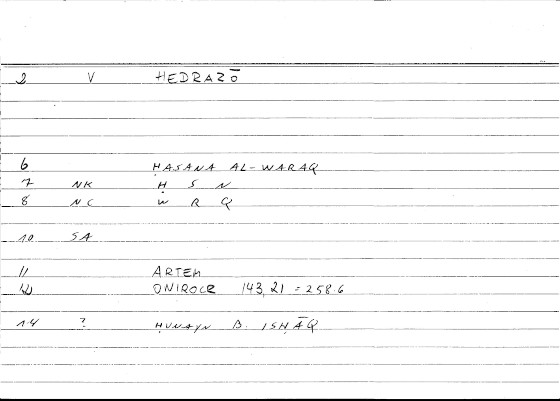 2 V HEDRAZŌ
6 ḤASANA AL-WARAQ
7 NK Ḥ S N
8 NC W R Q
10 SA
11 ARTEM
12 ONIROCR 143,21 = 258.6
14 ? ḤUNAYN B. ISḤĀQ